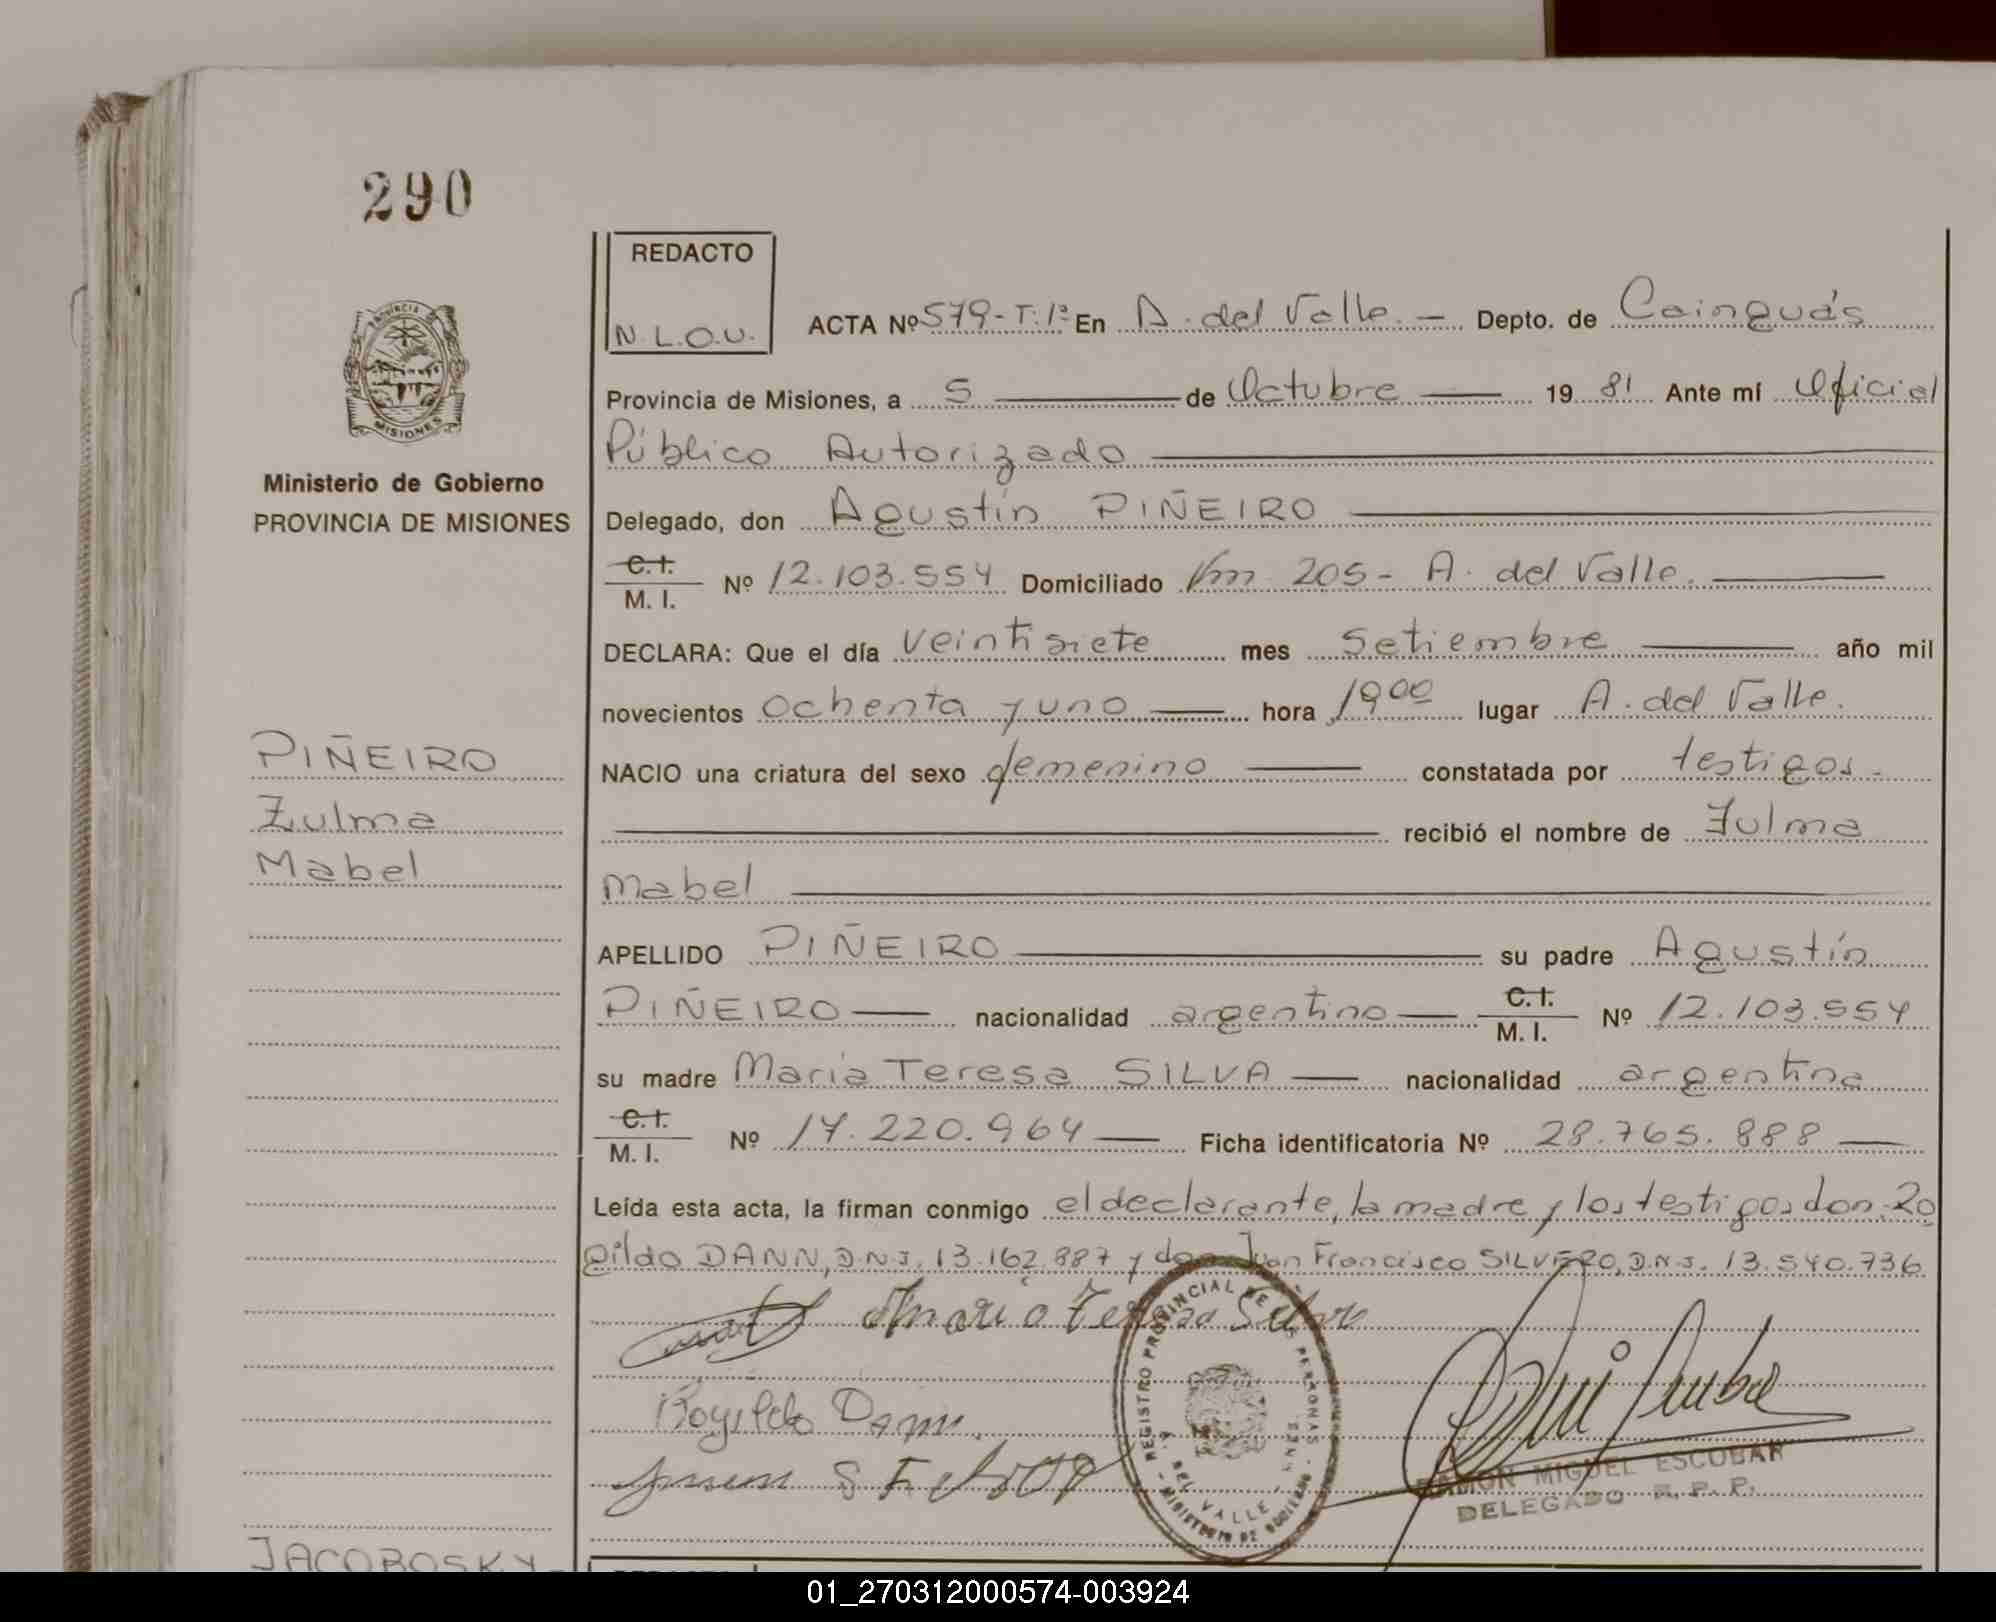 290
REDACTO
N.L.O.U.
ACTA Nº 579-T:1º En A. del Valle.— Depto. de Cainguás
Provincia de Misiones, a 5 — de Octubre — 19 81 Ante mí Oficial
Público Autorizado
Delegado, don Agustín PIÑEIRO
C. I.
M. I. Nº 12.103.554 Domiciliado Km 205- A. del Valle.
DECLARA: Que el día veintisiete mes setiembre — año mil
novecientos ochenta y uno — hora 19 00 lugar A. del Valle.
NACIO una criatura del sexo femenino — constatada por testigos.-
recibió el nombre de Zulma
Mabel
APELLIDO PIÑEIRO — su padre Agustín
PIÑEIRO — nacionalidad argentino — C. I.
M. I. Nº 12.103.554
su madre María Teresa SILVA — nacionalidad argentina
C. I.
M. I. Nº 17.220.964 — Ficha identificatoria Nº 28.765.888 —
Leída esta acta, la firman conmigo el declarante, la madre y los testigos don Ro
gildo DANN, D.N.I. 13.162.887 y don Juan Francisco SILVERO, D.N.I. 13.540.736
Maria Teresa Silva
Rogildo Dann.
REGISTRO PROVINCIAL DE LAS PERSONAS
A. DEL VALLE
MINISTERIO DE GOBIERNO
RAMON MIGUEL ESCOBAR
DELEGADO R. P. P.
PROVINCIA
MISIONES
Ministerio de Gobierno
PROVINCIA DE MISIONES
PIÑEIRO
Zulma
Mabel
JACOBOSKY
REDACTO
01_270312000574-003924